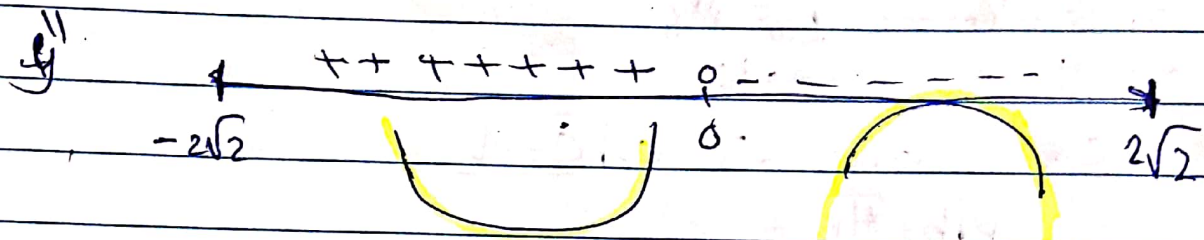 y"
+ + + + + + + 0 - - - - - - - -
-2√2 0 2√2